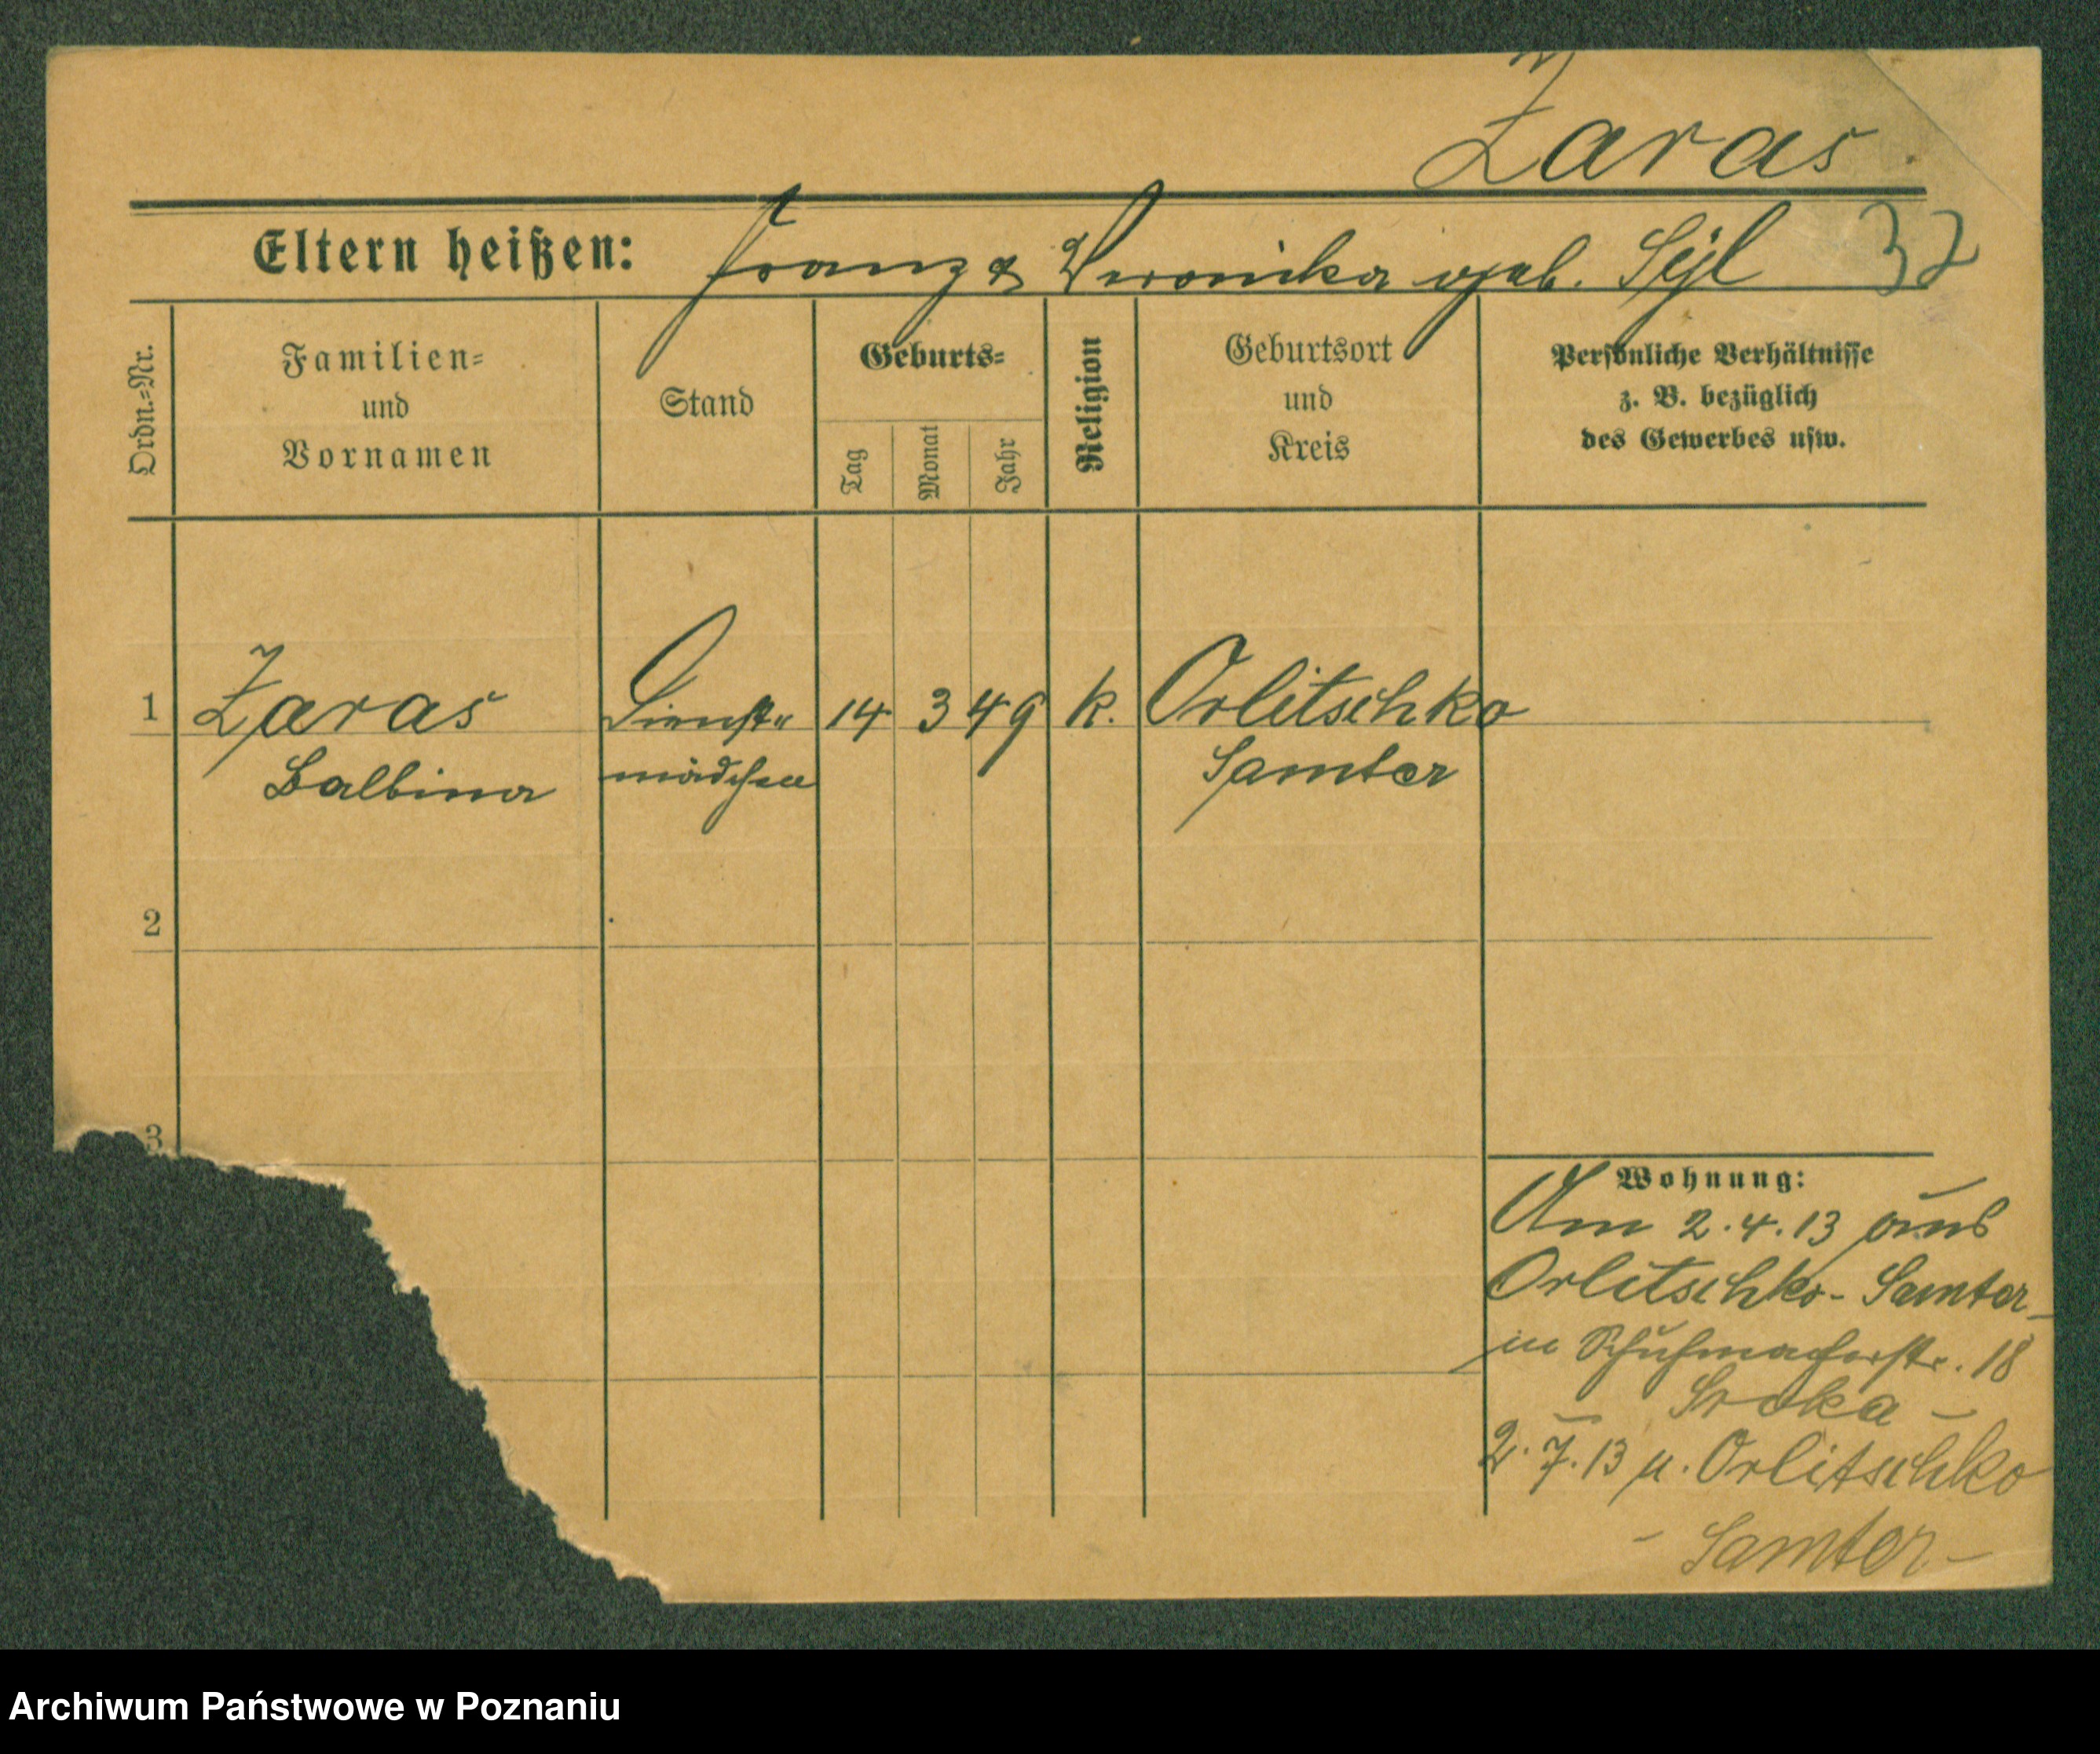 Zaras.
Eltern heißen: Franz & Veronika geb. Sijl 32
Ordn.=Nr.
Familien=
und
Vornamen
Stand
Geburts=
Tag
Monat
Jahr
Religion
Geburtsort
und
Kreis
Persönliche Verhältnisse
z. B. bezüglich
des Gewerbes usw.
1 Zaras Dienst= 14 3 49 k. Orlitschko
Balbina mädchen Samter
2
3
Wohnung:
Am 2.4.13 aus
Orlitschko - Samter -
in Schuhmacherstr. 18
Sroka -
2.7.13 n. Orlitschko
- Samter -
Archiwum Państwowe w Poznaniu